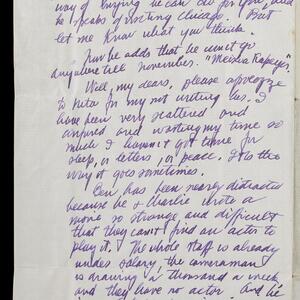 way of buying he can do for you, and
he speaks of visiting Chicago. But
let me know what you think.
Jim he adds that he won't go
anywhere till November.
Well, my dears, please apologize
to Rita for my not writing her. I
have been very scattered and
and wasting my time so
much I haven't got time for
sleep, or letters, or peace. It's the
way it goes sometimes.
Ben has been nearly distracted
because he & Charlie wrote a
movie so strange and difficult
that they can't find an actor to
play it. The whole staff is already
under salary the cameraman
is drawing a thousand a week
and they have no actor. And he